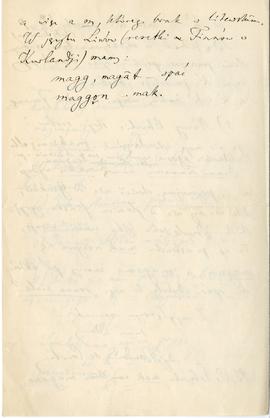 a więc a on, którego brak w litewskim.
W języku Liwów (resztki Finnów w
Kurlandji) mamy:
magg, magāt – spać
maggon . mak.